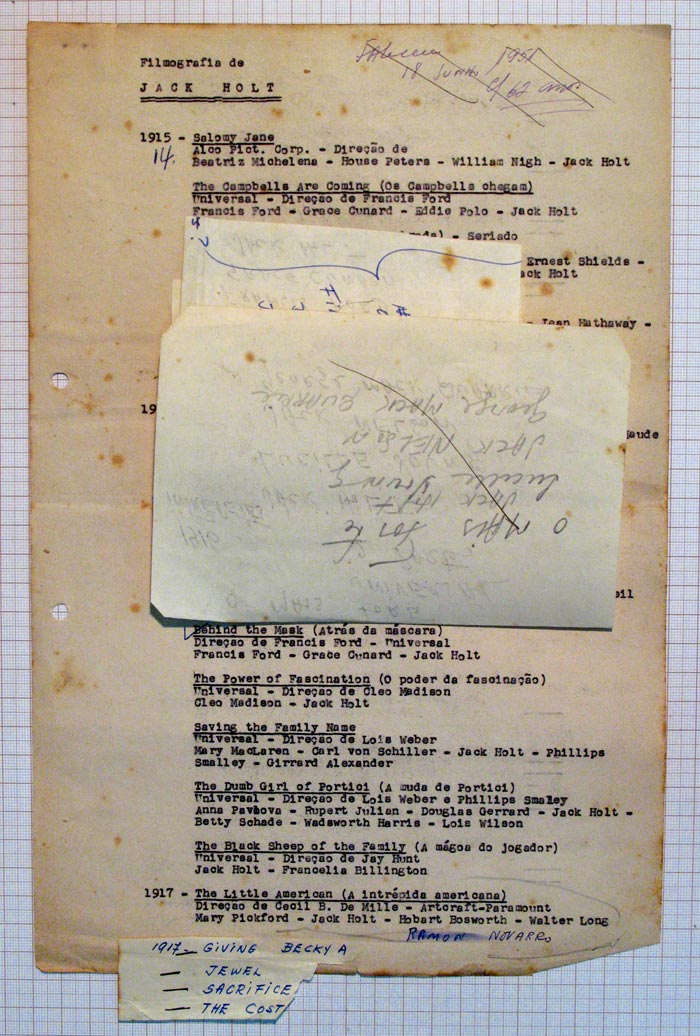 Filmografia de
JACK HOLT
18 Junho 1951
c/ 62 anos
1915 - Salomy Jane
14.
Alco Pict. Corp. - Direção de
Beatriz Michelena - House Peters - William Nigh - Jack Holt
The Campbells Are Coming (Os Campbells chegam)
Universal - Direção de Francis Ford
Francis Ford - Grace Cunard - Eddie Polo - Jack Holt
- Seriado
Ernest Shields -
Jack Holt
- Jean Hathaway -
19
O MAIS FORTE
JACK HOLT
JACK NELSON
GEORGE MACK QUARRIE
Behind the Mask (Atrás da máscara)
Direção de Francis Ford - Universal
Francis Ford - Grace Cunard - Jack Holt
The Power of Fascination (O poder da fascinação)
Universal - Direção de Cleo Madison
Cleo Madison - Jack Holt
Saving the Family Name
Universal - Direção de Lois Weber
Mary MacLaren - Carl von Schiller - Jack Holt - Phillips
Smalley - Girrard Alexander
The Dumb Girl of Portici (A muda de Portici)
Universal - Direção de Lois Weber e Phillips Smalley
Anna Pavlova - Rupert Julian - Douglas Gerrard - Jack Holt -
Betty Schade - Wadsworth Harris - Lois Wilson
The Black Sheep of the Family (A mágoa do jogador)
Universal - Direção de Jay Hunt
Jack Holt - Francelia Billington
1917 - The Little American (A intrépida americana)
Direção de Cecil B. De Mille - Artcraft-Paramount
Mary Pickford - Jack Holt - Hobart Bosworth - Walter Long
RAMON NOVARRO
1917 - GIVING BECKY A
- JEWEL
- SACRIFICE
- THE COST